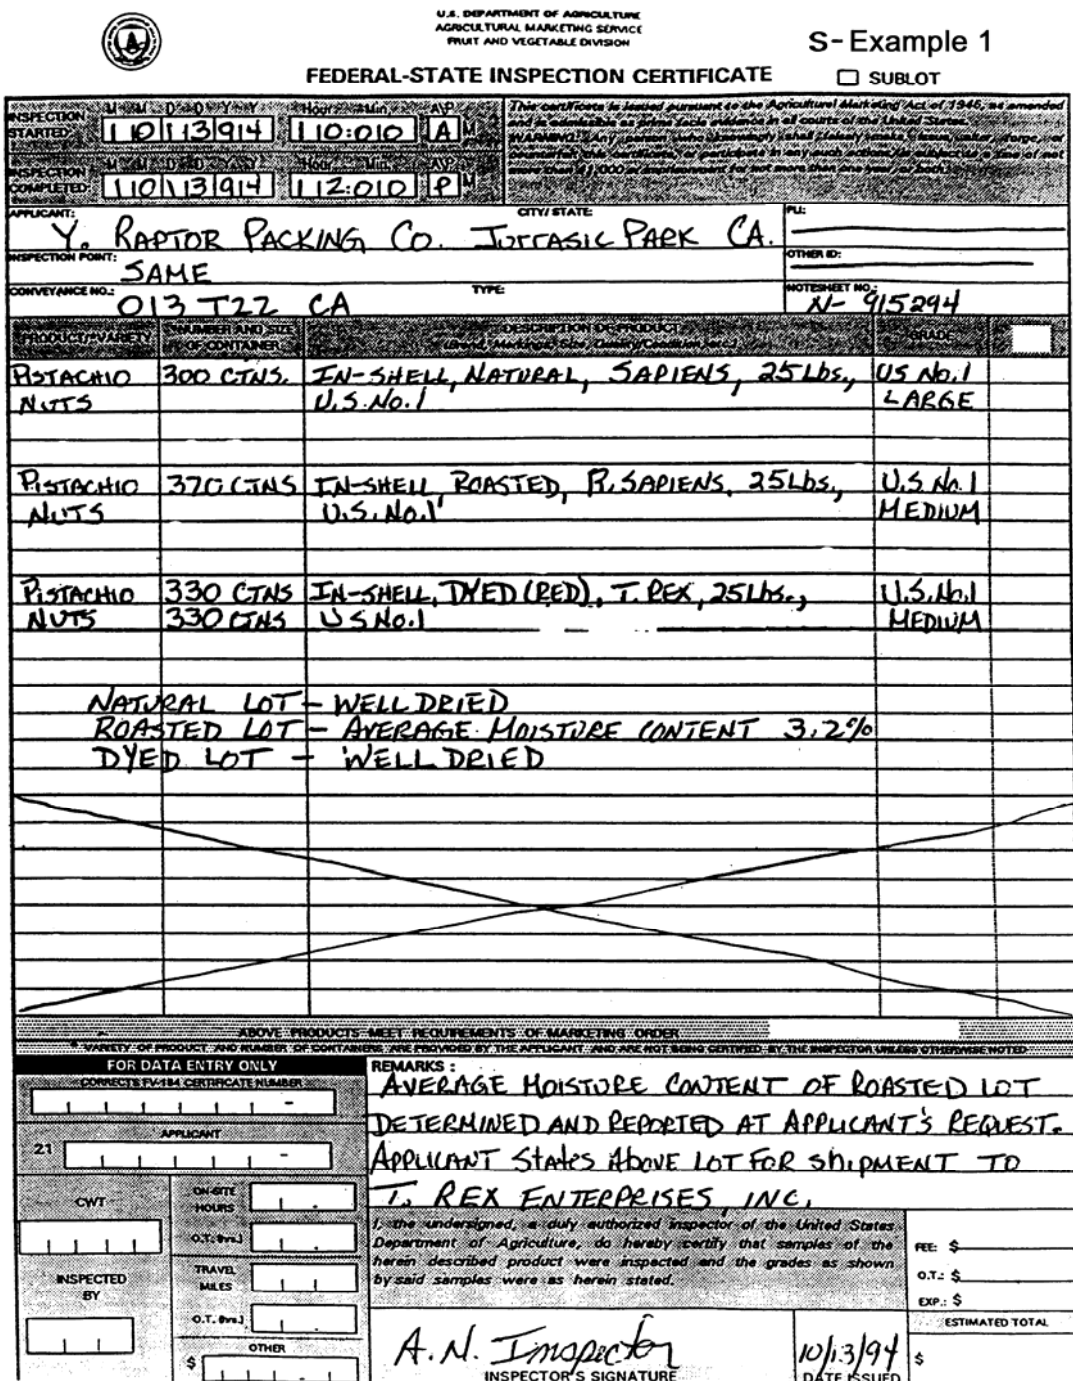 U.S. DEPARTMENT OF AGRICULTURE
AGRICULTURAL MARKETING SERVICE
FRUIT AND VEGETABLE DIVISION
S-Example 1
FEDERAL-STATE INSPECTION CERTIFICATE
SUBLOT
INSPECTION STARTED: M M D D Y Y Hour Min. A/P
10 13 94 10:00 A M
INSPECTION COMPLETED: M M D D Y Y Hour Min. A/P
10 13 94 12:00 P M
This certificate is issued pursuant to the Agricultural Marketing Act of 1946, as amended
and is admissible as prima facie evidence in all courts of the United States.
WARNING: Any person who knowingly shall falsely make, issue, alter, forge, or
counterfeit this certificate, or participate in any such actions, is subject to a fine of not
more than $1,000 or imprisonment for not more than one year, or both.
APPLICANT: CITY/STATE: PLI:
Y. RAPTOR PACKING CO. JURRASIC PARK CA.
INSPECTION POINT: SAME OTHER ID:
CONVEYANCE NO.: 013 T22 CA TYPE: NOTESHEET NO.: N- 915294
PRODUCT/*VARIETY *NUMBER AND SIZE OF CONTAINER DESCRIPTION OF PRODUCT (Brand, Markings, Size, Quality/Condition, etc.) GRADE
PISTACHIO 300 CTNS. IN-SHELL, NATURAL, SAPIENS, 25 Lbs., US No. 1
NUTS U.S. No. 1 LARGE
PISTACHIO 370 CTNS IN-SHELL, ROASTED, P. SAPIENS, 25 Lbs., U.S. No. 1
NUTS U.S. No. 1 MEDIUM
PISTACHIO 330 CTNS IN-SHELL, DYED (RED), T. REX, 25 Lbs., U.S. No. 1
NUTS 330 CTNS U S No. 1 MEDIUM
NATURAL LOT - WELL DRIED
ROASTED LOT - AVERAGE MOISTURE CONTENT 3.2%
DYED LOT - WELL DRIED
ABOVE PRODUCTS MEET REQUIREMENTS OF MARKETING ORDER
* VARIETY OF PRODUCT AND NUMBER OF CONTAINERS ARE PROVIDED BY THE APPLICANT AND ARE NOT BEING CERTIFIED BY THE INSPECTOR UNLESS OTHERWISE NOTED
FOR DATA ENTRY ONLY
CORRECTS FV-184 CERTIFICATE NUMBER
-
APPLICANT
21 -
CWT
INSPECTED
BY
ON-SITE
HOURS
O.T. (hrs.)
TRAVEL
MILES
O.T. (hrs.)
OTHER
$
REMARKS :
AVERAGE MOISTURE CONTENT OF ROASTED LOT
DETERMINED AND REPORTED AT APPLICANT'S REQUEST.
APPLICANT STATES ABOVE LOT FOR SHIPMENT TO
T. REX ENTERPRISES, INC.
I, the undersigned, a duly authorized inspector of the United States
Department of Agriculture, do hereby certify that samples of the
herein described product were inspected and the grades as shown
by said samples were as herein stated.
FEE: $
O.T.: $
EXP.: $
ESTIMATED TOTAL
$
A.N. Inspector
INSPECTOR'S SIGNATURE
10/13/94
DATE ISSUED